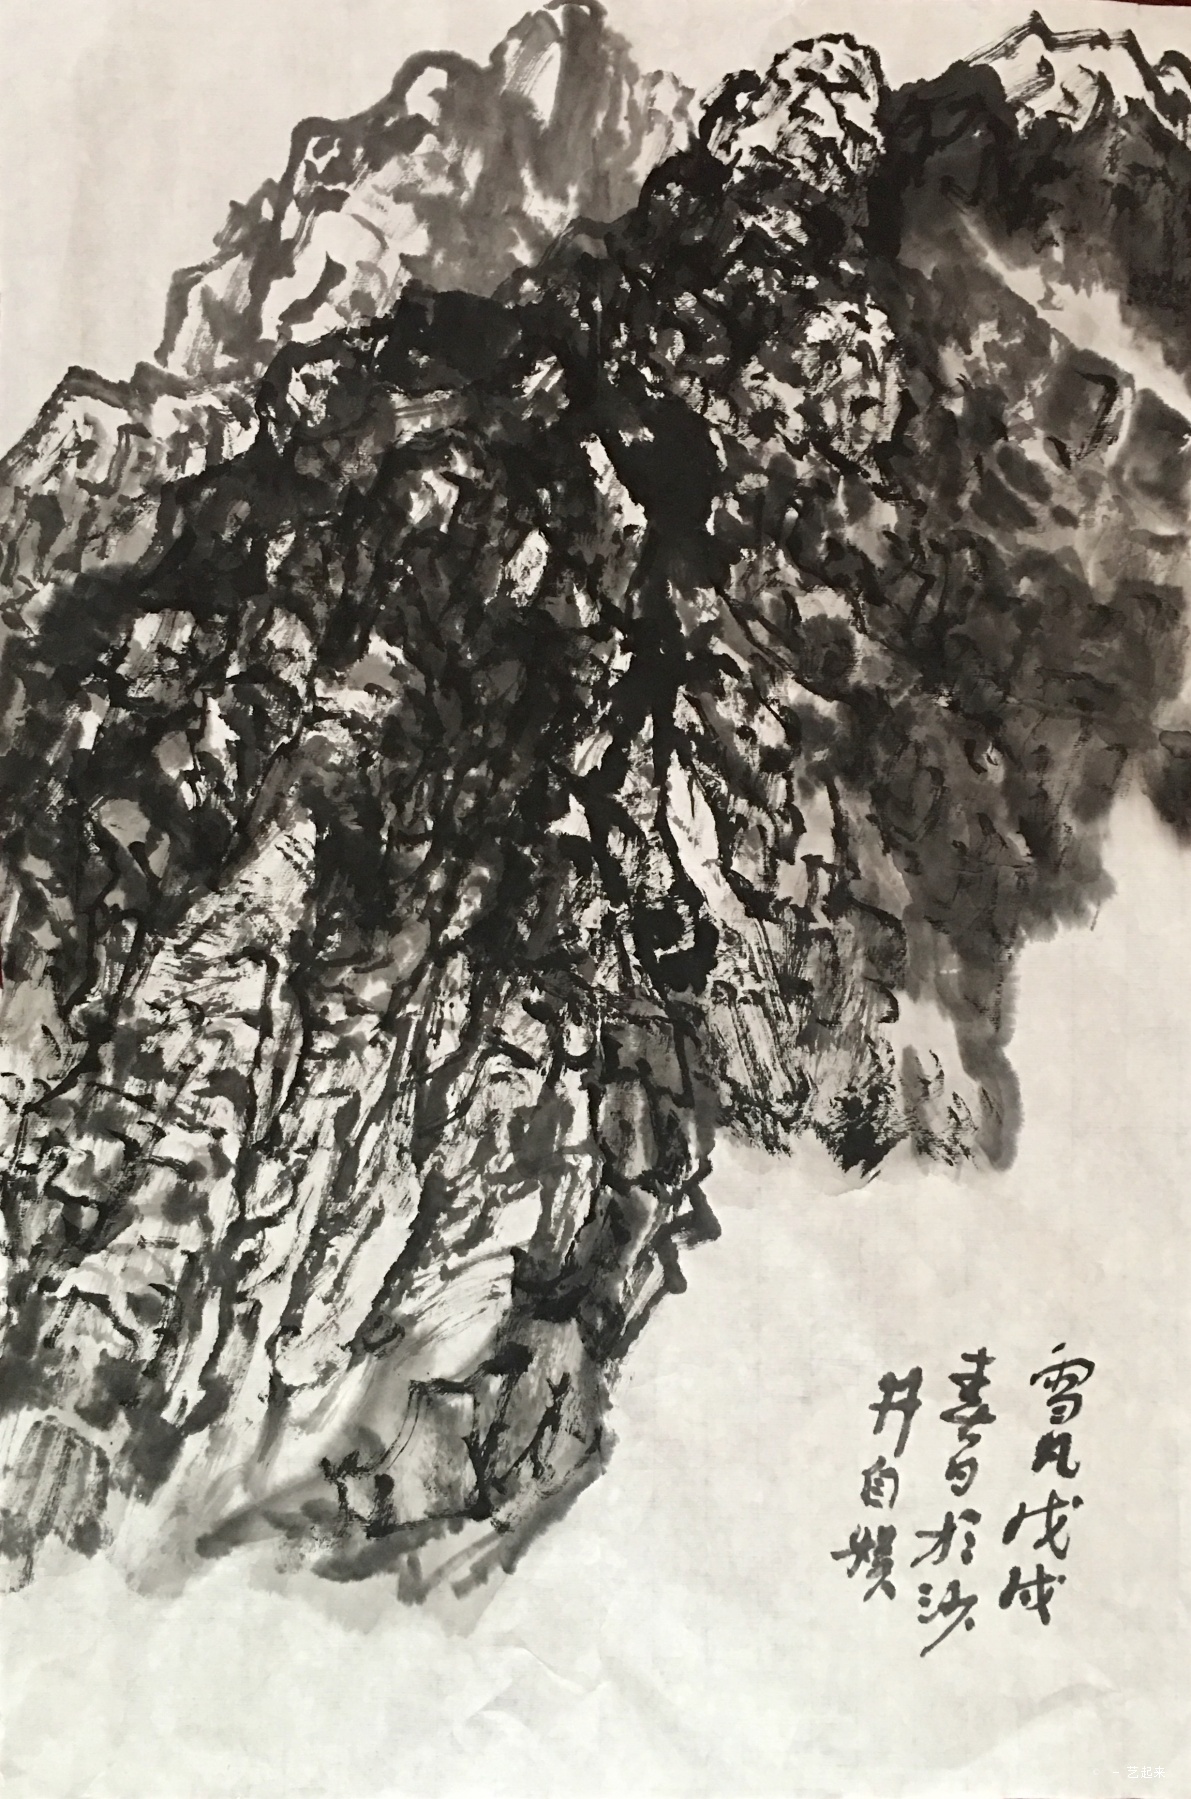 雪凡戊戌
春月於沙
井自娱
艺起来